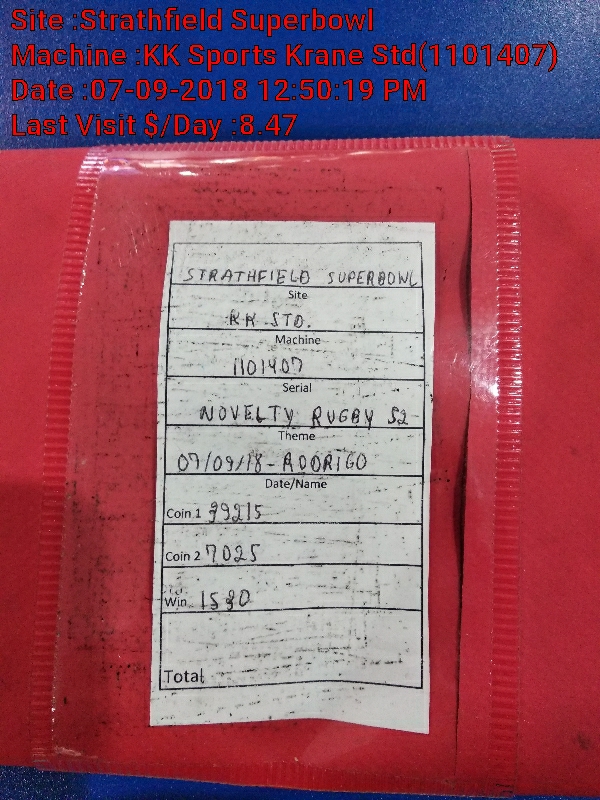 Site :Strathfield Superbowl
Machine :KK Sports Krane Std(1101407)
Date :07-09-2018 12:50:19 PM
Last Visit $/Day :8.47
STRATHFIELD SUPERBOWL
Site
KK STD.
Machine
1101407
Serial
NOVELTY RUGBY S2
Theme
07/09/18-ADORIGO
Date/Name
Coin 1 39215
Coin 2 7025
Win 1530
Total